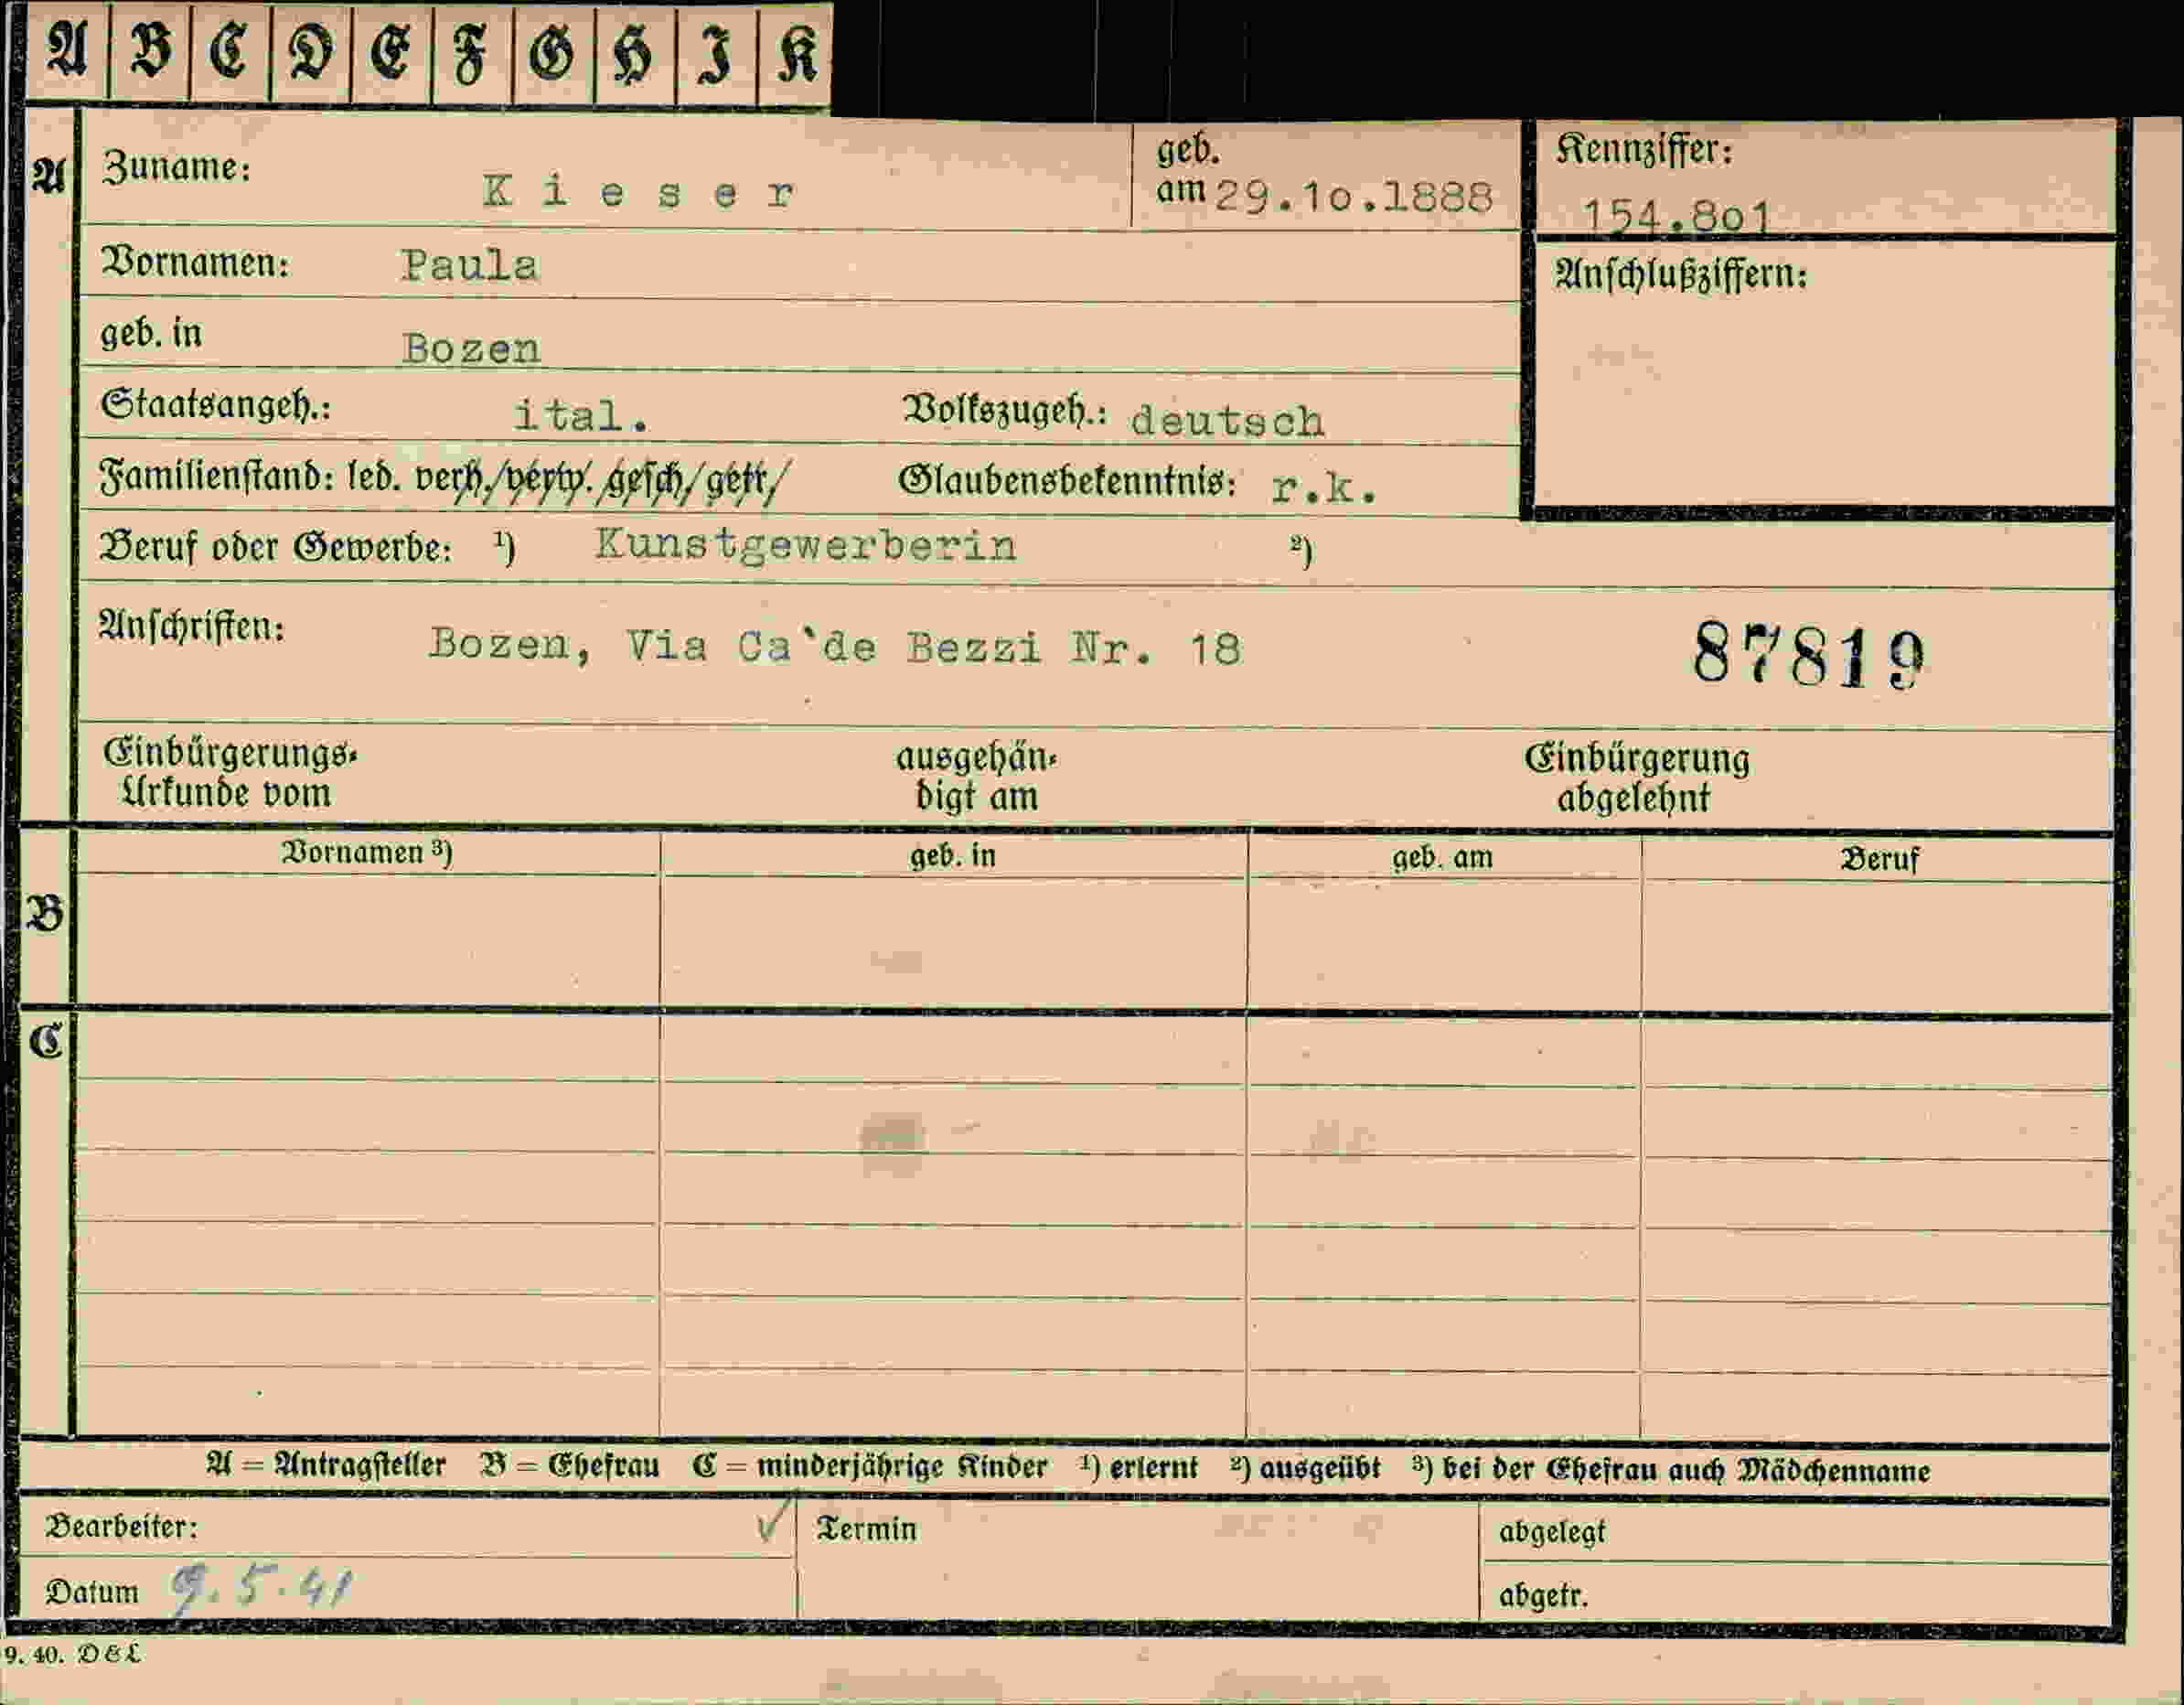 A B C D E F G H I K
A Zuname: Kieser geb. am 29.10.1888 Kennziffer: 154.801
Vornamen: Paula Anschlußziffern:
geb. in Bozen
Staatsangeh.: ital. Volkszugeh.: deutsch
Familienstand: led. verh./verw. gesch/getr/ Glaubensbekenntnis: r.k.
Beruf oder Gewerbe: ¹) Kunstgewerberin ²)
Anschriften: Bozen, Via Ca`de Bezzi Nr. 18 87819
Einbürgerungs- ausgehän- Einbürgerung
Urkunde vom digt am abgelehnt
Vornamen ³) geb. in geb. am Beruf
B
C
A = Antragsteller B = Ehefrau C = minderjährige Kinder ¹) erlernt ²) ausgeübt ³) bei der Ehefrau auch Mädchenname
Bearbeiter: ✓ Termin abgelegt
Datum 9.5.41 abgetr.
9. 40. D&L